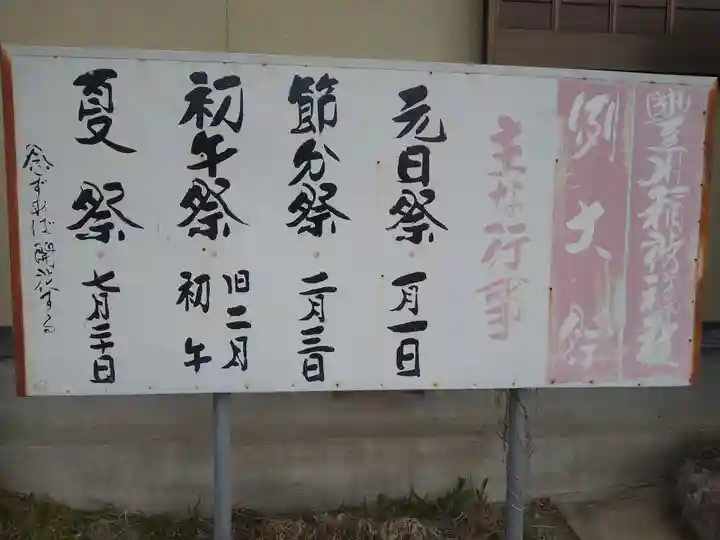 豊川稲荷神社
例大祭
主な行事
元日祭・一月一日
節分祭・二月三日
初午祭・旧二月
初午
夏祭・七月二十日
念ずれば開花する